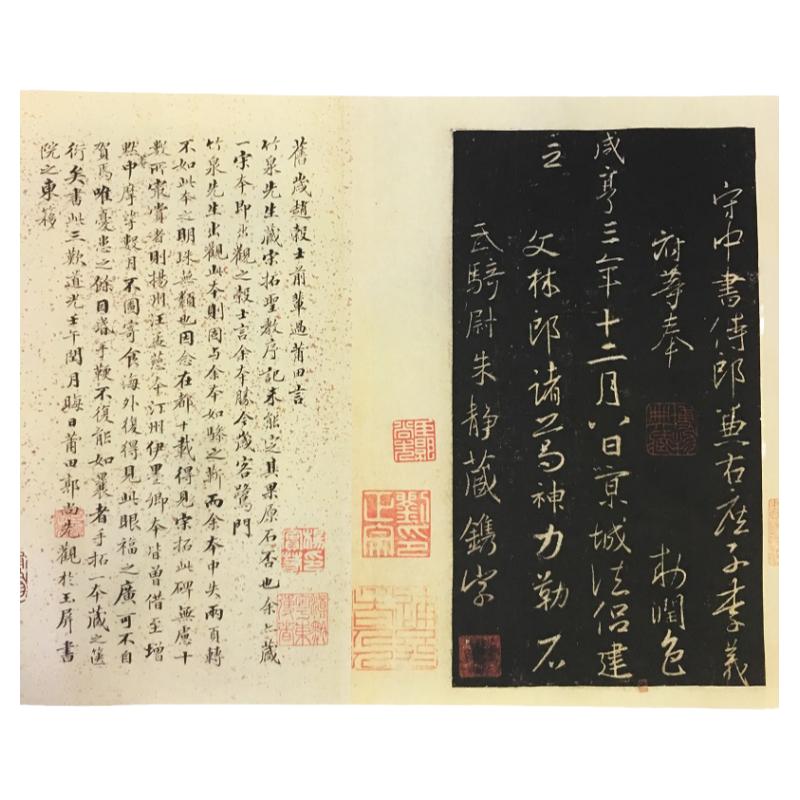 守中書侍郎兼右庶子李義
府等奉 敕潤色
咸亨三年十二月八日京城法侶建
立
文林郎諸葛神力勒石
武騎尉朱靜藏鐫字
舊歲趙穀士前輩過莆田言
竹泉先生藏宋拓聖教序記未能定其果原石否也余亦藏
一宋本即出觀之穀士言余本勝今歲客鷺門
竹泉先生出觀此本則固与余本如驂之靳而余本中失兩頁轉
不如此本之明珠無纇也因念在都十載得見宋拓此碑無慮十
數所最賞者則揚州汪孟慈本汀州伊墨卿本皆曾借至增
默中摩挲數月不圖寄食海外復得見此眼福之廣可不自
賀焉唯憂患之餘目眵手鞭不復能如曩者手拓一本藏之篋
衍矣書此三歎道光壬午閏月晦日莆田郭尚先觀於玉屏書
院之東簃